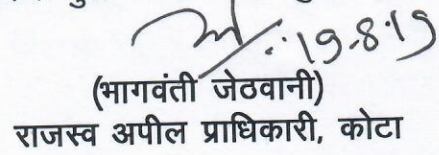 19-8-19
(भागवंती जेठवानी)
राजस्व अपील प्राधिकारी, कोटा